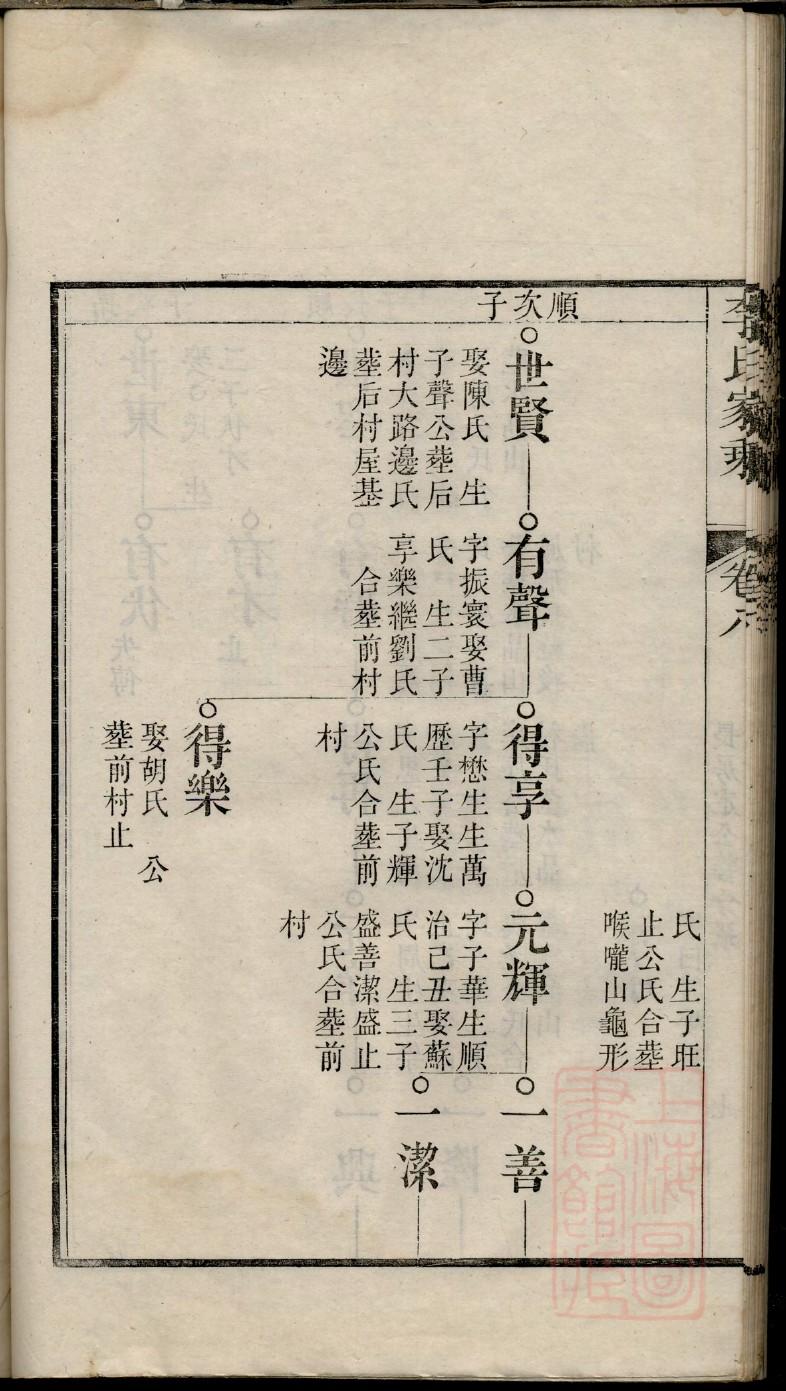 李氏家乘
卷六
氏　生子旺
止公氏合塟
喉嚨山龜形
順次子
世賢
娶陳氏　生
子聲公塟后
村大路邊氏
塟后村屋基
邊
有聲
字振寰娶曹
氏　生二子
享樂繼劉氏
合塟前村
得享
字懋生生萬
歷壬子娶沈
氏　生子輝
公氏合塟前
村
元輝
字子華生順
治己丑娶蘇
氏　生三子
盛善潔盛止
公氏合塟前
村
一善
一潔
得樂
娶胡氏　公
塟前村止
上海圖書館藏